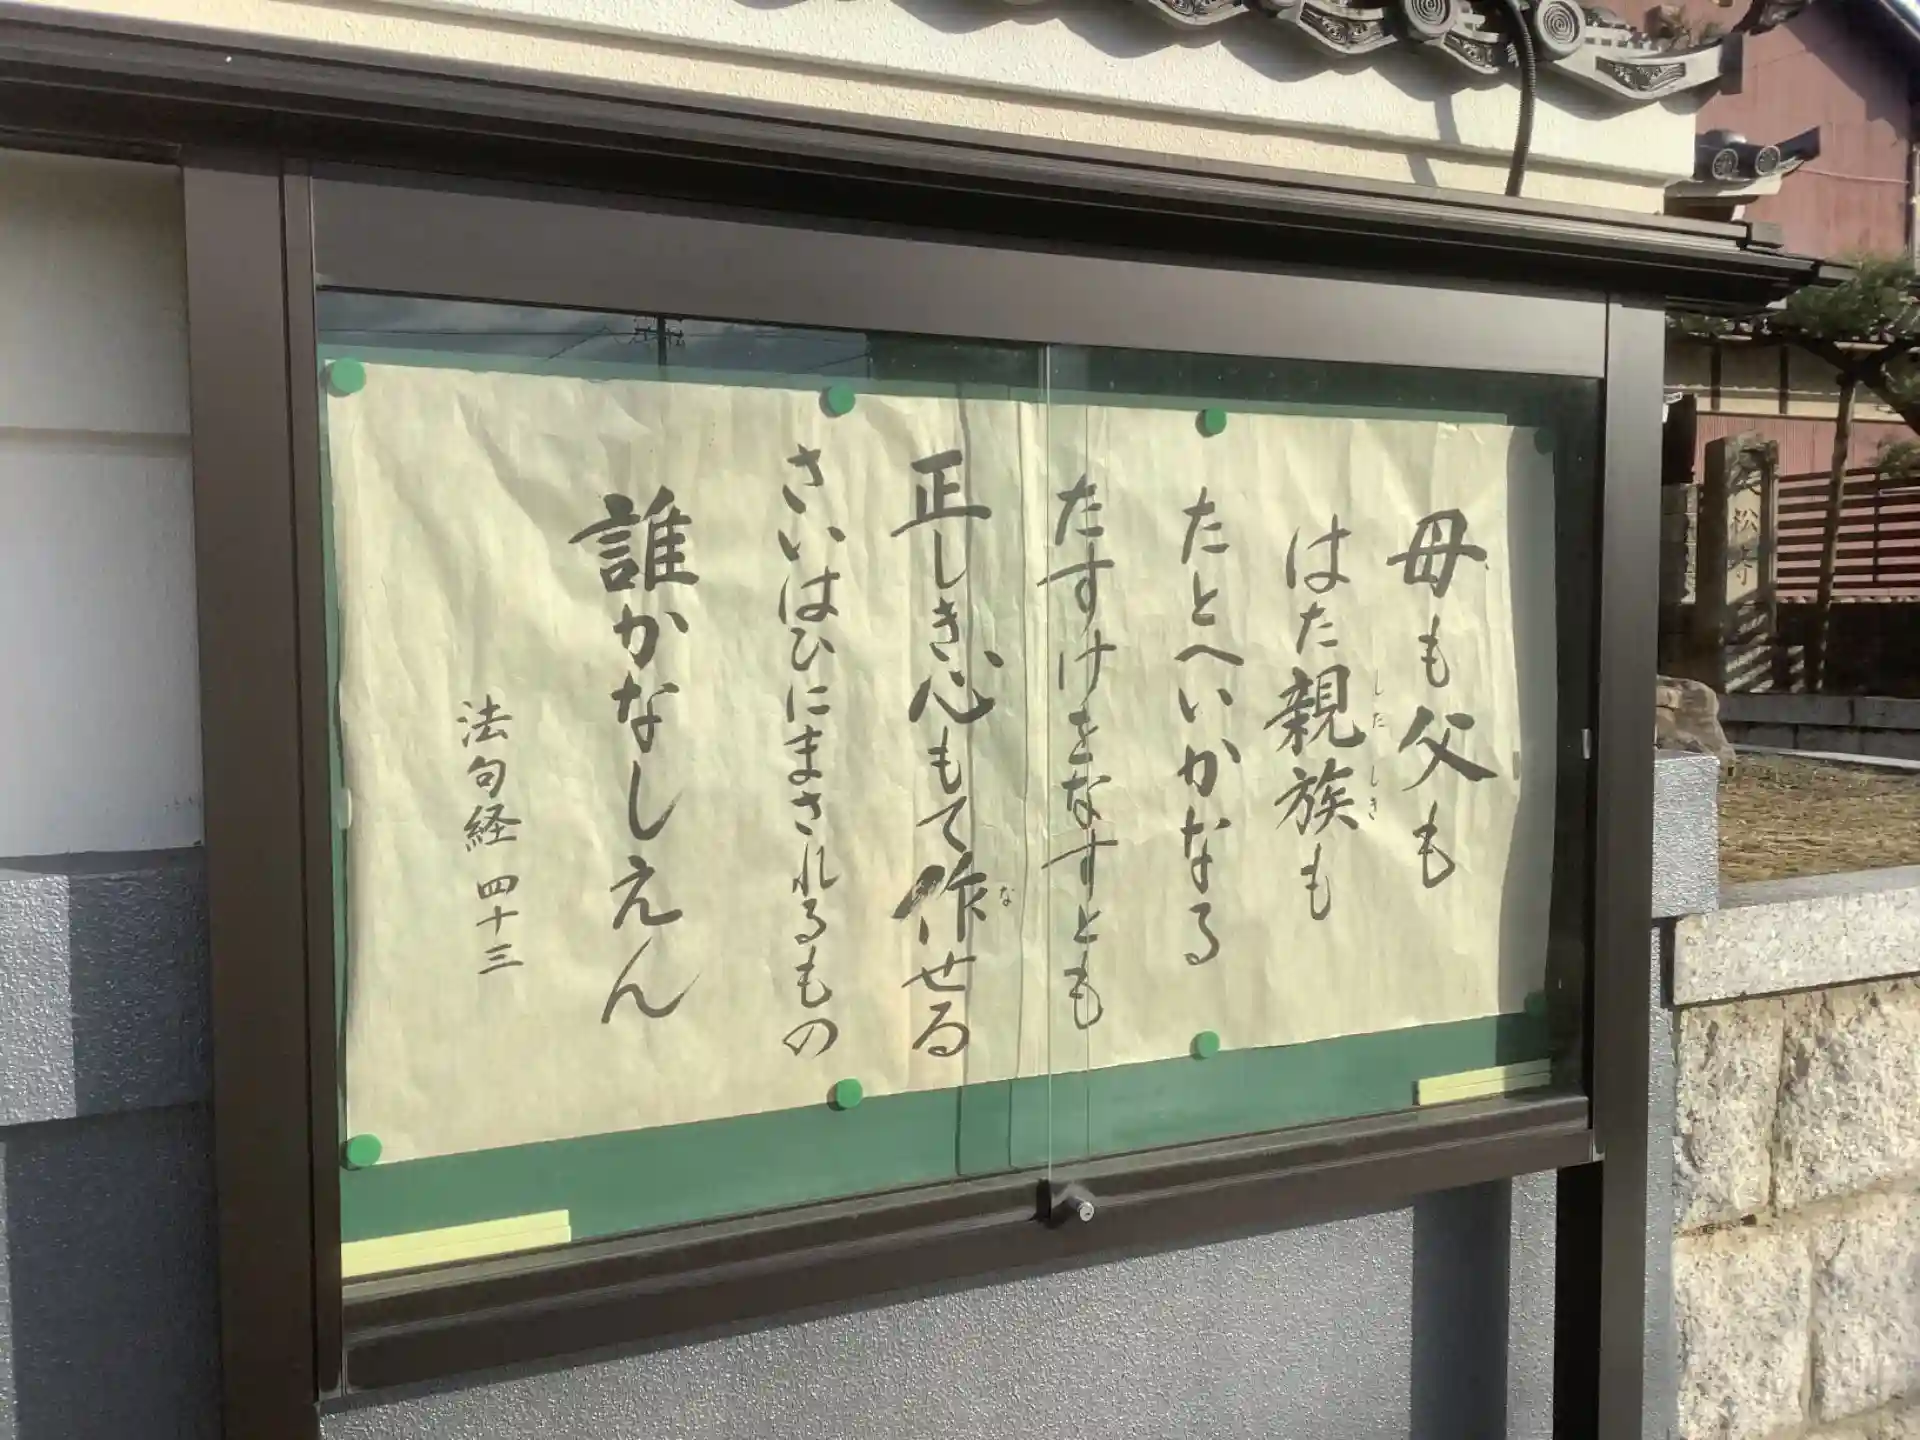 母も父も
はた親族も
したしき
たとへいかなる
たすけをなすとも
正しき心もて作せる
な
さいはひにまされるもの
誰かなしえん
法句経 四十三
松